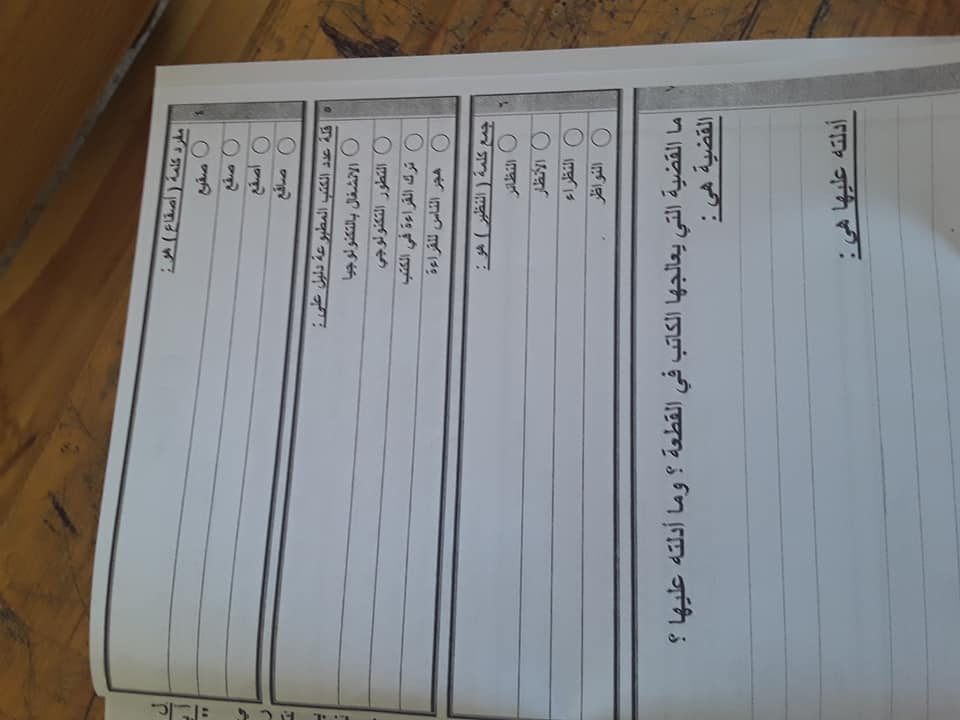 ٤
مفرد كلمة ( أصقاع ) هو :
صقيع
صقع
أصقع
صاقع
٥
قلة عدد الكتب المطبوعة دليل على :
الانشغال بالتكنولوجيا
التطور التكنولوجي
ترك القراءة في الكتب
هجر الناس للقراءة
٦
جمع كلمة ( النظير ) هو :
النظائر
الأنظار
النظراء
النواظر
٧
ما القضية التي يعالجها الكاتب في القطعة ؟ وما أدلته عليها ؟
القضية هي :
أدلته عليها هي :